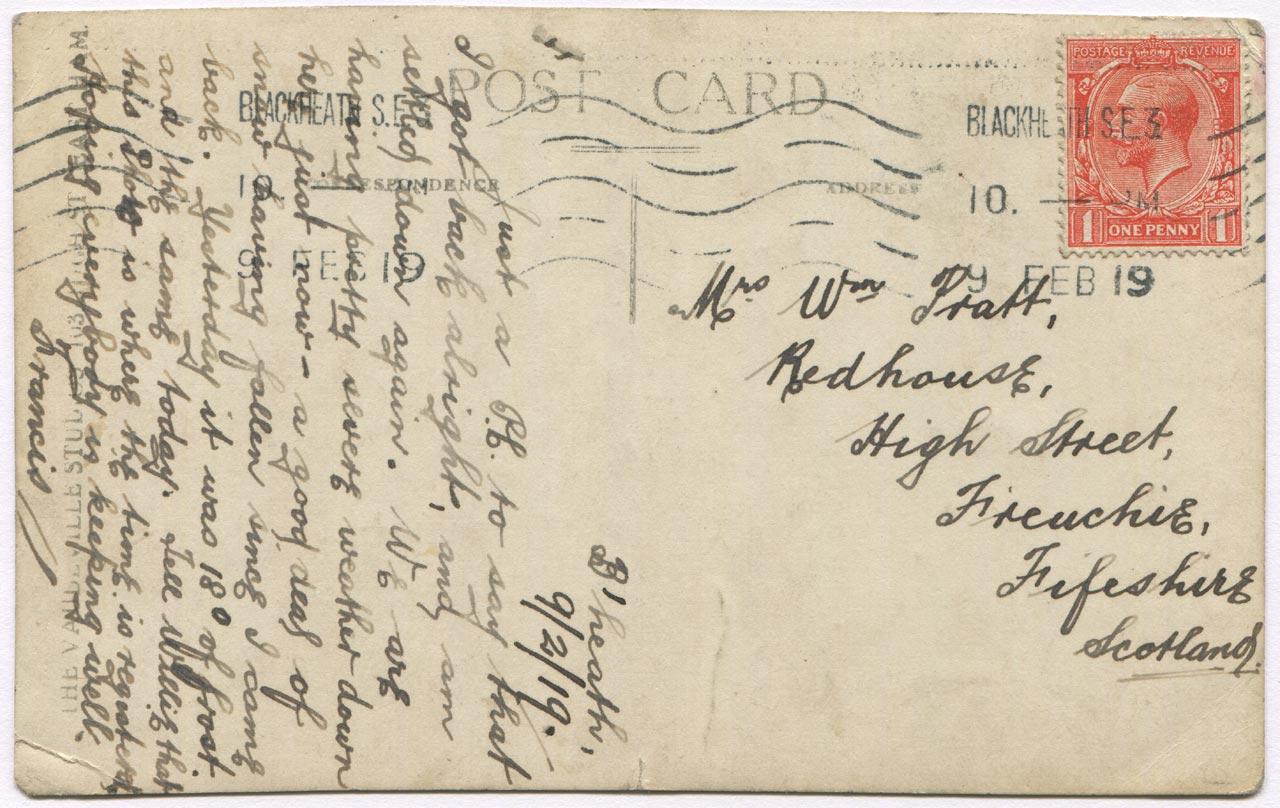 POST CARD
CORRESPONDENCE
ADDRESS
POSTAGE REVENUE
1 ONE PENNY 1
BLACKHEATH S.E.3
10. — PM
9 FEB 19
BLACKHEATH S.E.3
10. — PM
9 FEB 19
Mrs Wm Pratt,
Redhouse,
High Street,
Freuchie,
Fifeshire
Scotland.
B'heath,
9/2/19.
Just a P.C. to say that
I got back alright, and am
settled down again. We are
having pretty severe weather down
here just now – a good deal of
snow having fallen since I came
back. Yesterday it was 18° of frost
and the same today. Tell Willie that
this Photo is where the time is registered
Hoping everybody is keeping well.
Francis